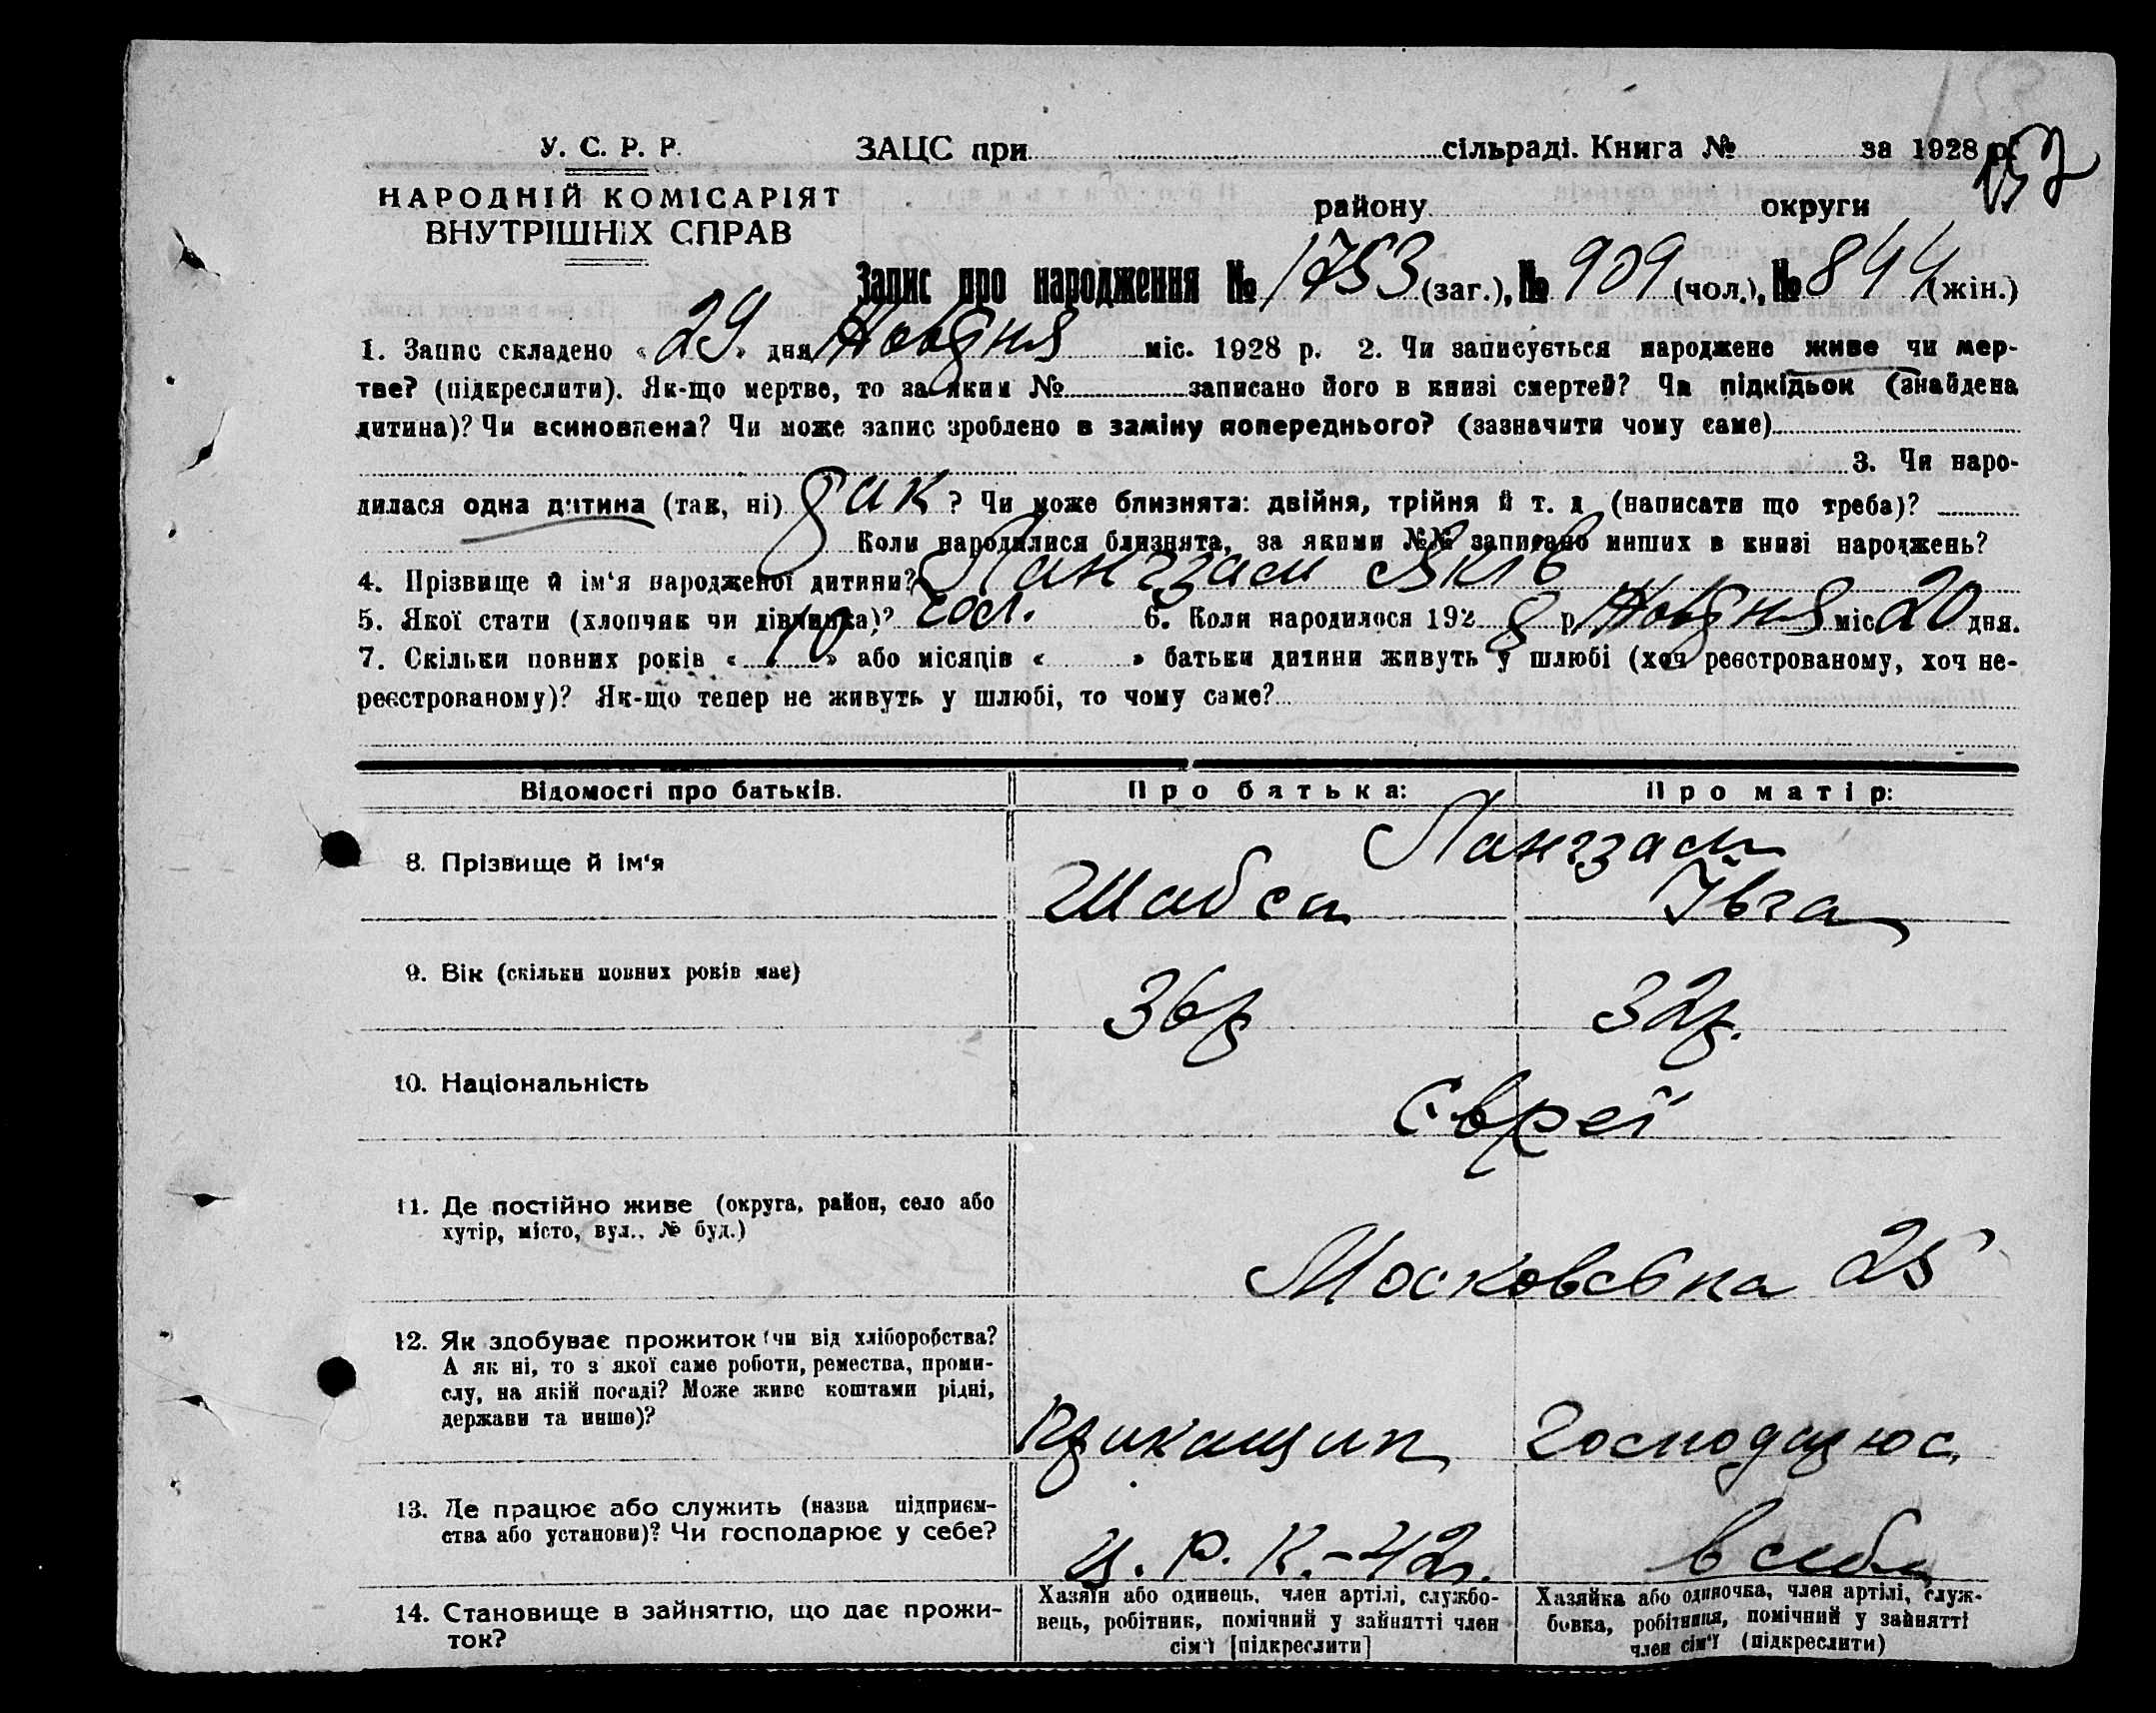 У. С. Р. Р. ЗАЦС при сільраді. Книга № за 1928 р.
НАРОДНІЙ КОМІСАРІЯТ району округи
ВНУТРІШНІХ СПРАВ
Запис про народження № 1753 (заг.), № 909 (чол.), № 844 (жін.)
1. Запис складено « 29 » дня Жовтня міс. 1928 р. 2. Чи записується народжене живе чи мер-
тве? (підкреслити). Як-що мертве, то за яким № записано його в книзі смертей? Чи підкідьок (знайдена
дитина)? Чи всиновлена? Чи може запис зроблено в заміну попереднього? (зазначити чому саме)
3. Чи наро-
дилася одна дитина (так, ні) так ? Чи може близнята: двійня, трійня й т. д (написати що треба)?
Коли народилися близнята, за якими №№ записано инших в книзі народжень?
4. Прізвище й ім'я народженої дитини? Лангзам Яків
5. Якої стати (хлопчик чи дівчинка)? чол. 6. Коли народилося 192 8 р. Жовтня міс 20 дня.
7. Скільки повних років « 10 » або місяців « » батьки дитини живуть у шлюбі (хоч реєстрованому, хоч не-
реєстрованому)? Як-що тепер не живуть у шлюбі, то чому саме?
Відомості про батьків. Про батька: Про матір:
Лангзам
8. Прізвище й ім'я Шабса Івга
9. Вік (скільки повних років має) 36 р 32 р.
10. Національність Євреї
11. Де постійно живе (округа, район, село або
хутір, місто, вул., № буд.) Московська 25
12. Як здобуває прожиток (чи від хліборобства?
А як ні, то з якої саме роботи, ремества, проми-
слу, на якій посаді? Може живе коштами рідні,
держави та инше)? Прикащик Господарює
13. Де працює або служить (назва підприєм-
ства або установи)? Чи господарює у себе? Ц. Р. К. в себе
14. Становище в зайняттю, що дає прожи-
ток?
Хазяїн або одинець, член артілі, службо-
вець, робітник, помічний у зайнятті член
сім'ї [підкреслити]
Хазяйка або одиночка, член артілі, служ-
бовка, робітниця, помічний у зайнятті
член сім'ї (підкреслити)